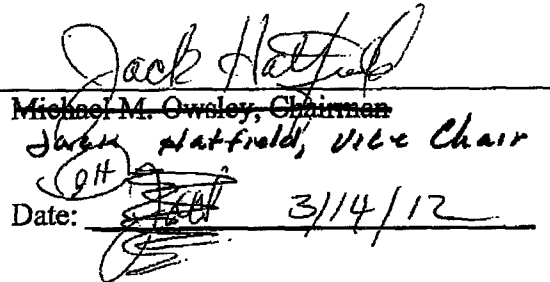 Jack Hatfield
Michael M. Owsley, Chairman
Jack Hatfield, Vice Chair
JH
Date: 3/14/12